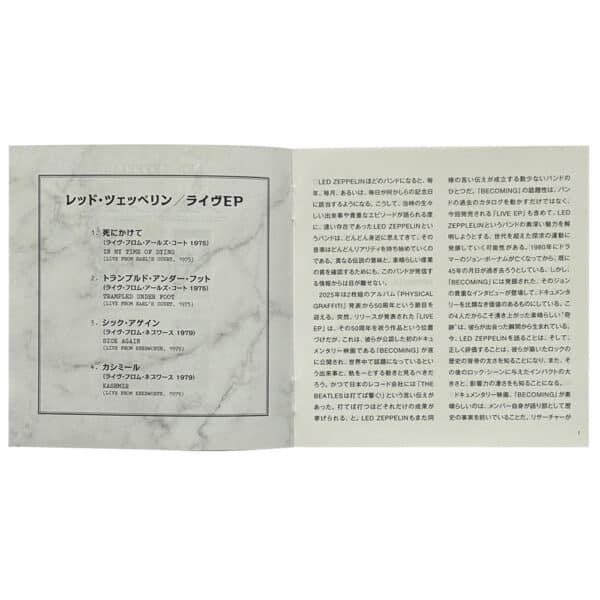 レッド・ツェッペリン／ライヴEP
1. 死にかけて
(ライヴ・フロム・アールズ・コート 1975)
IN MY TIME OF DYING
(LIVE FROM EARL'S COURT, 1975)
2. トランプルド・アンダー・フット
(ライヴ・フロム・アールズ・コート 1975)
TRAMPLED UNDER FOOT
(LIVE FROM EARL'S COURT, 1975)
3. シック・アゲイン
(ライヴ・フロム・ネブワース 1979)
SICK AGAIN
(LIVE FROM KNEBWORTH, 1979)
4. カシミール
(ライヴ・フロム・ネブワース 1979)
KASHMIR
(LIVE FROM KNEBWORTH, 1979)
LED ZEPPELINほどのバンドになると、毎
年、毎月、あるいは、毎日が何かしらの記念日
に該当するようになる。こうして、当時の生々
しい出来事や貴重なエピソードが語られる度
に、遠い存在であったLED ZEPPELINとい
うバンドは、どんどん身近に思えてきて、その
音楽はどんどんリアリティを持ち始めていくの
である。異なる伝説の意味と、素晴らしい偉業
の質を確認するためにも、このバンドが発信す
る情報からは目が離せない。
2025年は2枚組のアルバム『PHYSICAL
GRAFFITI』発表から50周年という節目を
迎える。突然、リリースが発表された『LIVE
EP』は、その50周年を祝う作品という位置
づけだが、これは、彼らが公認した初のドキュ
メンタリー映画である『BECOMING』が遂
に公開され、世界中で話題になっているとい
う出来事と、軌を一とする動きと見るべきだろ
う。かつて日本のレコード会社には「THE
BEATLESは打てば響く」という言い伝えが
あった。打てば打つほどそれだけの成果が
挙げられる、と。LED ZEPPELINもまた同
様の言い伝えが成立する数少ないバンドの
ひとつだ。『BECOMING』の話題性は、バン
ドの過去のカタログを動かすだけではなく、
今回発売される『LIVE EP』も含めて、LED
ZEPPELINというバンドの奥深い魅力を解
明しようとする、世代を超えた探求の運動に
発展していく可能性がある。1980年にドラ
マーのジョン・ボーナムが亡くなってから、既に
45年の月日が過ぎ去ろうとしている。しかし、
『BECOMING』には発掘された、そのジョン
の貴重なインタビューが登場して、ドキュメンタ
リーを比類なき価値のあるものにしている。こ
の4人だからこそ湧き上がった素晴らしい“奇
跡”は、彼らが出会った瞬間から生まれている。
今、LED ZEPPELINを語ることは、そして、
正しく評価することは、彼らが築いたロックの
歴史の背骨の太さを知ることになり、また、そ
の後のロック・シーンに与えたインパクトの大
きさと、影響力の凄さをも知ることになる。
ドキュメンタリー映画、『BECOMING』が素
晴らしいのは、メンバー自身が語り部として歴
史の事実を紡いでいることだ。リサーチャーが
1